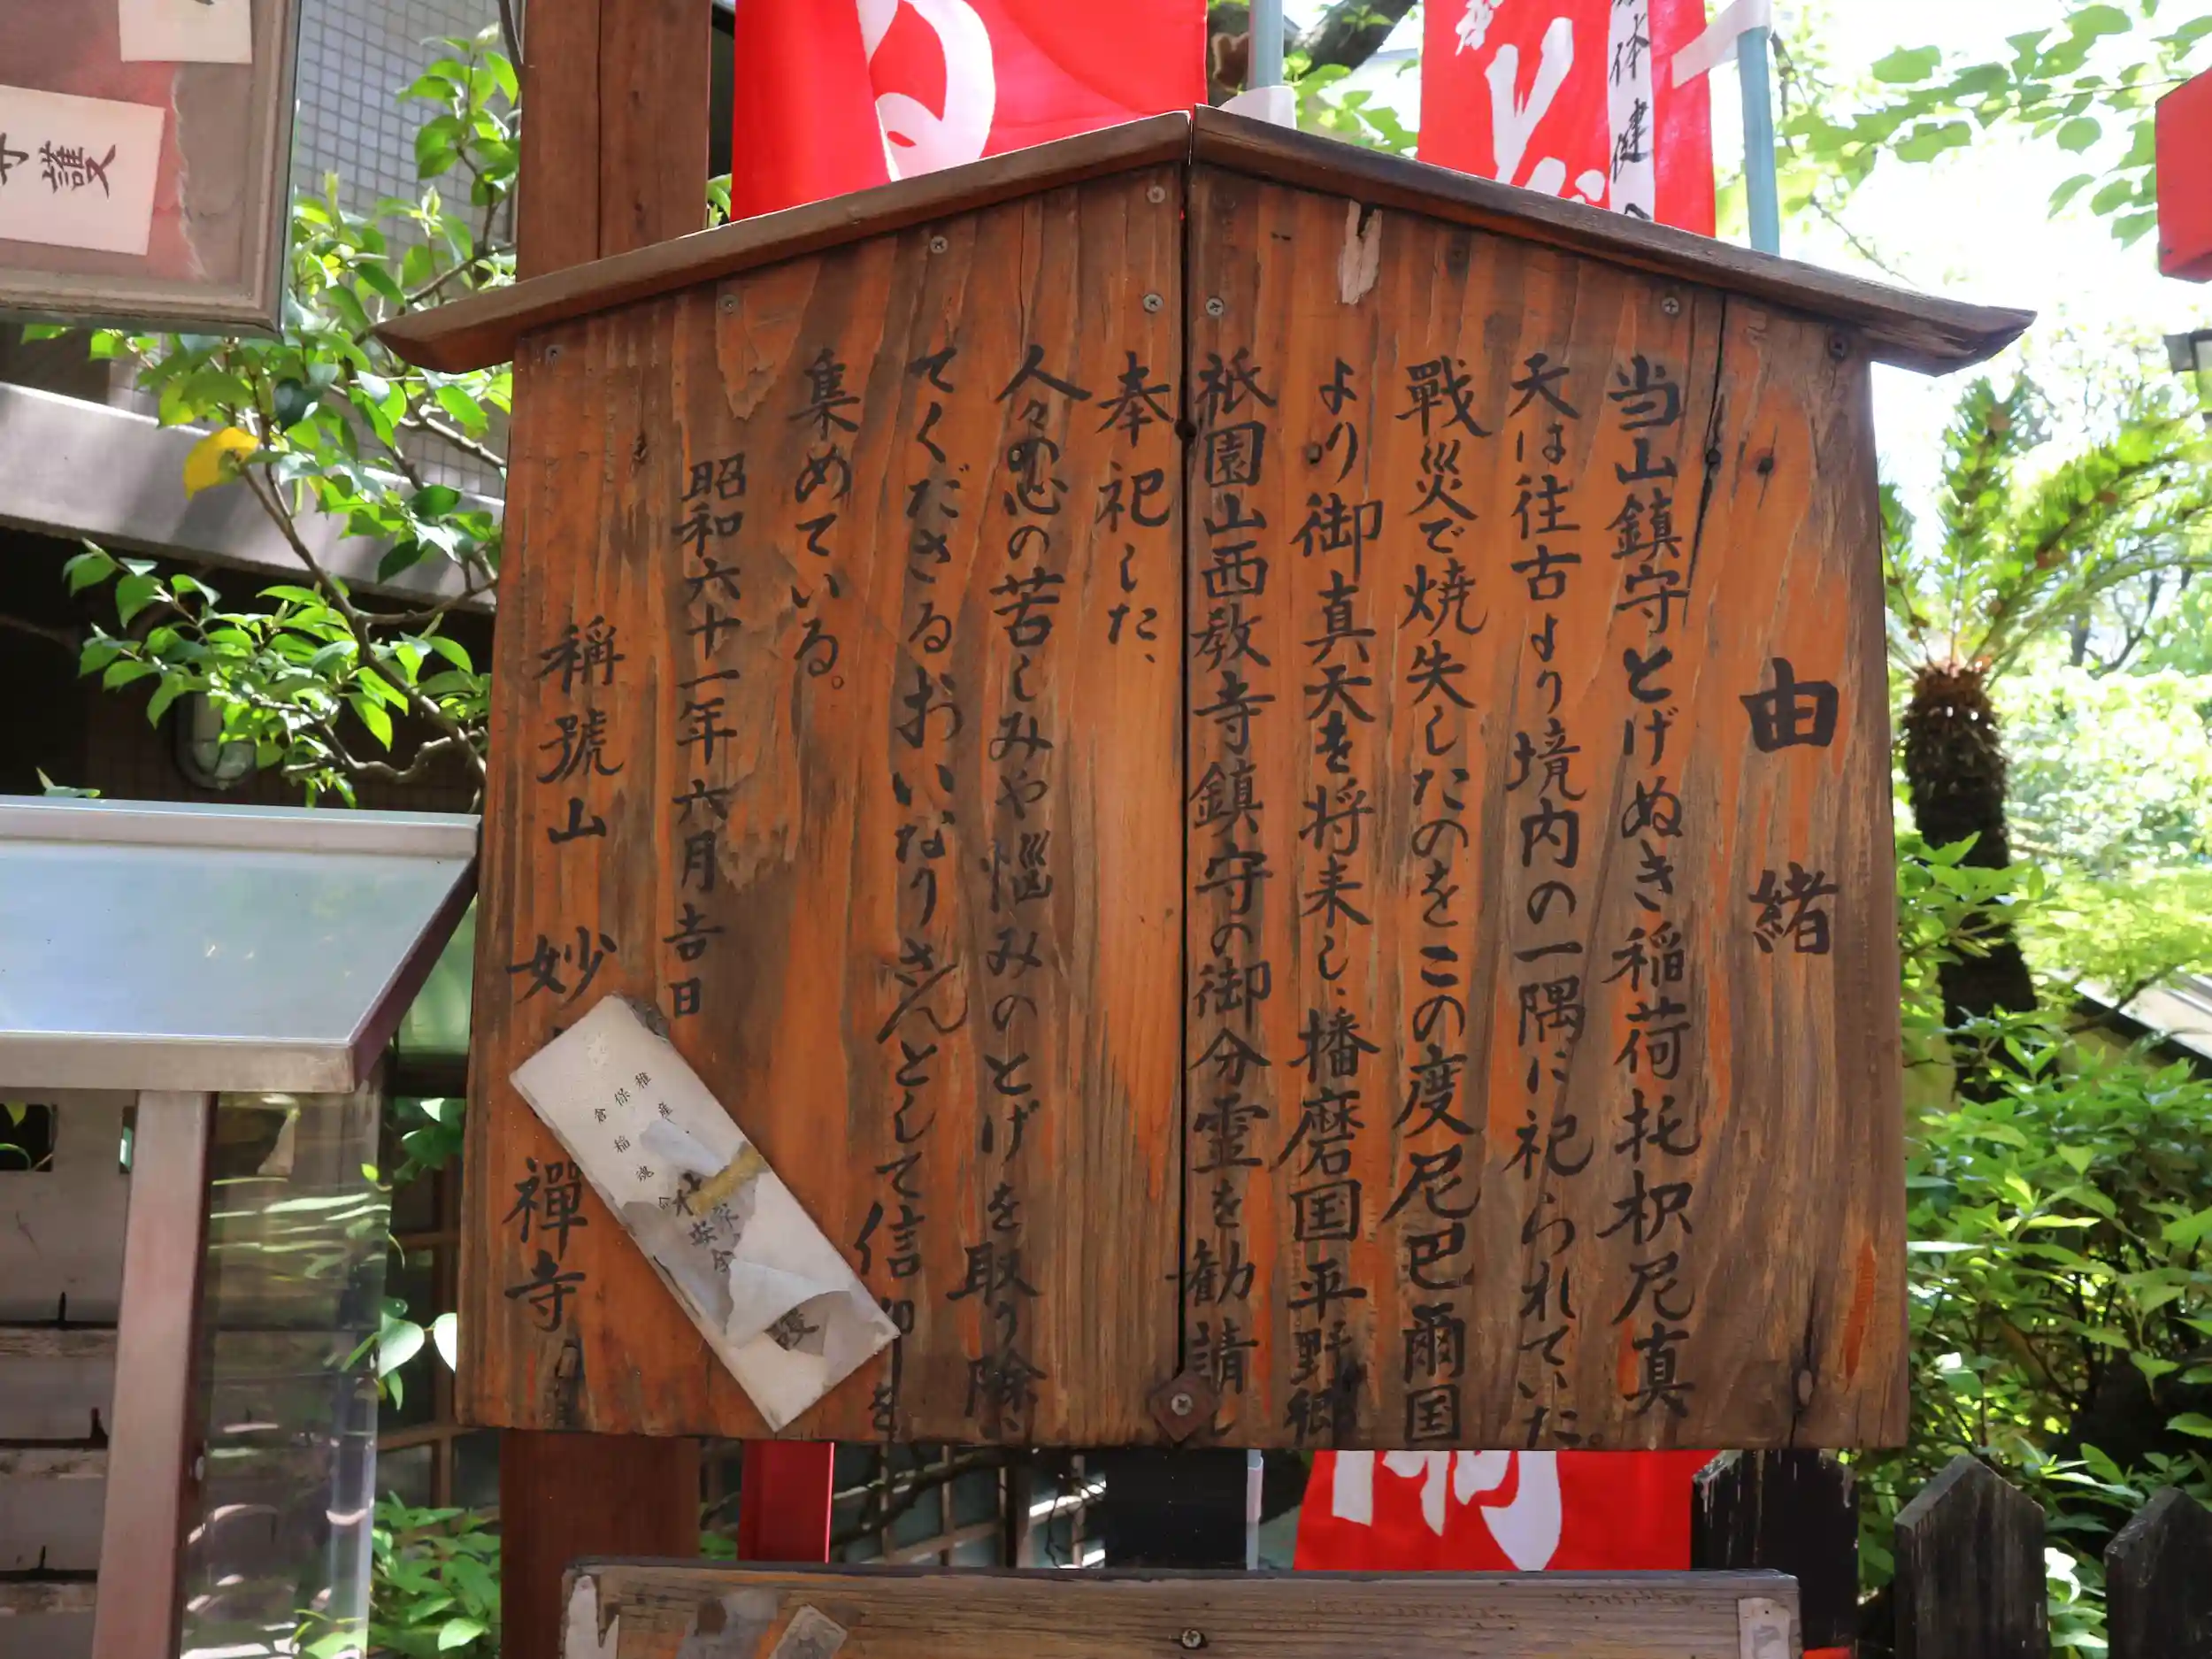 由緒
当山鎮守とげぬき稲荷托枳尼真
天は往古より境内の一隅に祀られていた。
戰災で焼失したのをこの度尼巴爾国
より御真天を将来し、播磨国平野郷
祇園山西教寺鎮守の御分霊を勧請し
奉祀した、
人々の心の苦しみや悩みのとげを取り除、
てくださるおいなりさんとして信仰を
集めている。
昭和六十一年六月吉日
稱號山 妙 禪寺
守護
体健